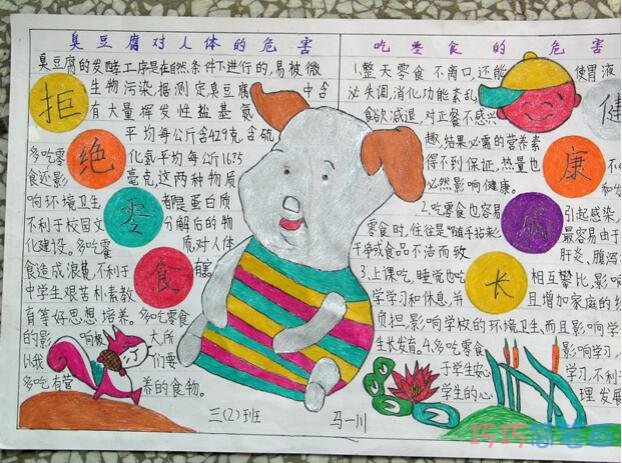 臭豆腐对人体的危害
臭豆腐的发酵工序是在自然条件下进行的,易被微
生物污染,据测定臭豆腐中含
有大量挥发性盐基氮
平均每公斤含
化氢平均每公斤
毫克,这两种物质
都是蛋白质
分解后的物
质,对人体
有害
拒
绝
零
食
多吃零
食还影
响环境卫生
不利于校园文
化建设。多吃零
食造成浪费,不利于
中学生艰苦朴素教
有等好思想培养。多吃零食
的影响被大所
以我们要
多吃有营养的食物。
三(2)班
马一川
吃零食的危害
1.整天零食不离口,还能使胃液
失调,消化功能紊乱
食欲减退,对正餐不感兴
趣,结果必需的营养素
得不到保证,热量也
必然影响健康。
2.吃零食也容易引起感染,
零食时,往往是"随手拈来"最容易由于
食品不洁而致肝炎,腹泻
3.上课吃,睡觉也吃相互攀比,影响
学学习和休息,并且增加家庭的
负担,影响学校的环境卫生,而且影响学
生长发育。4.多吃零食影响学习,
于学生安心学习,不利于
学生的心理发展
健
康
成
长
巧巧简笔画